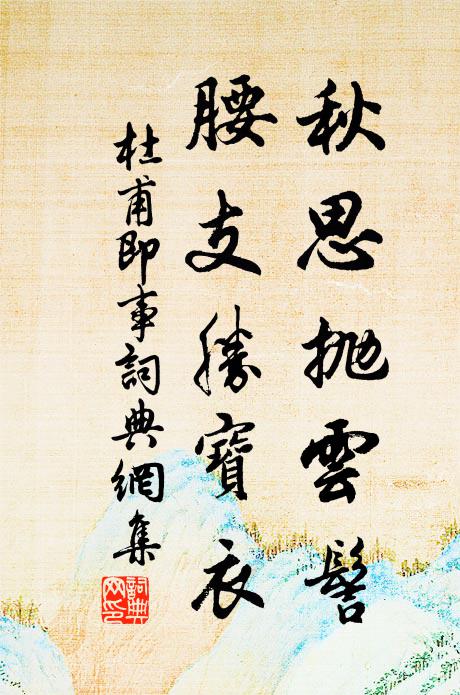 秋思抛雲髻
腰支勝寶衣
杜甫即事詞典網集
詞典